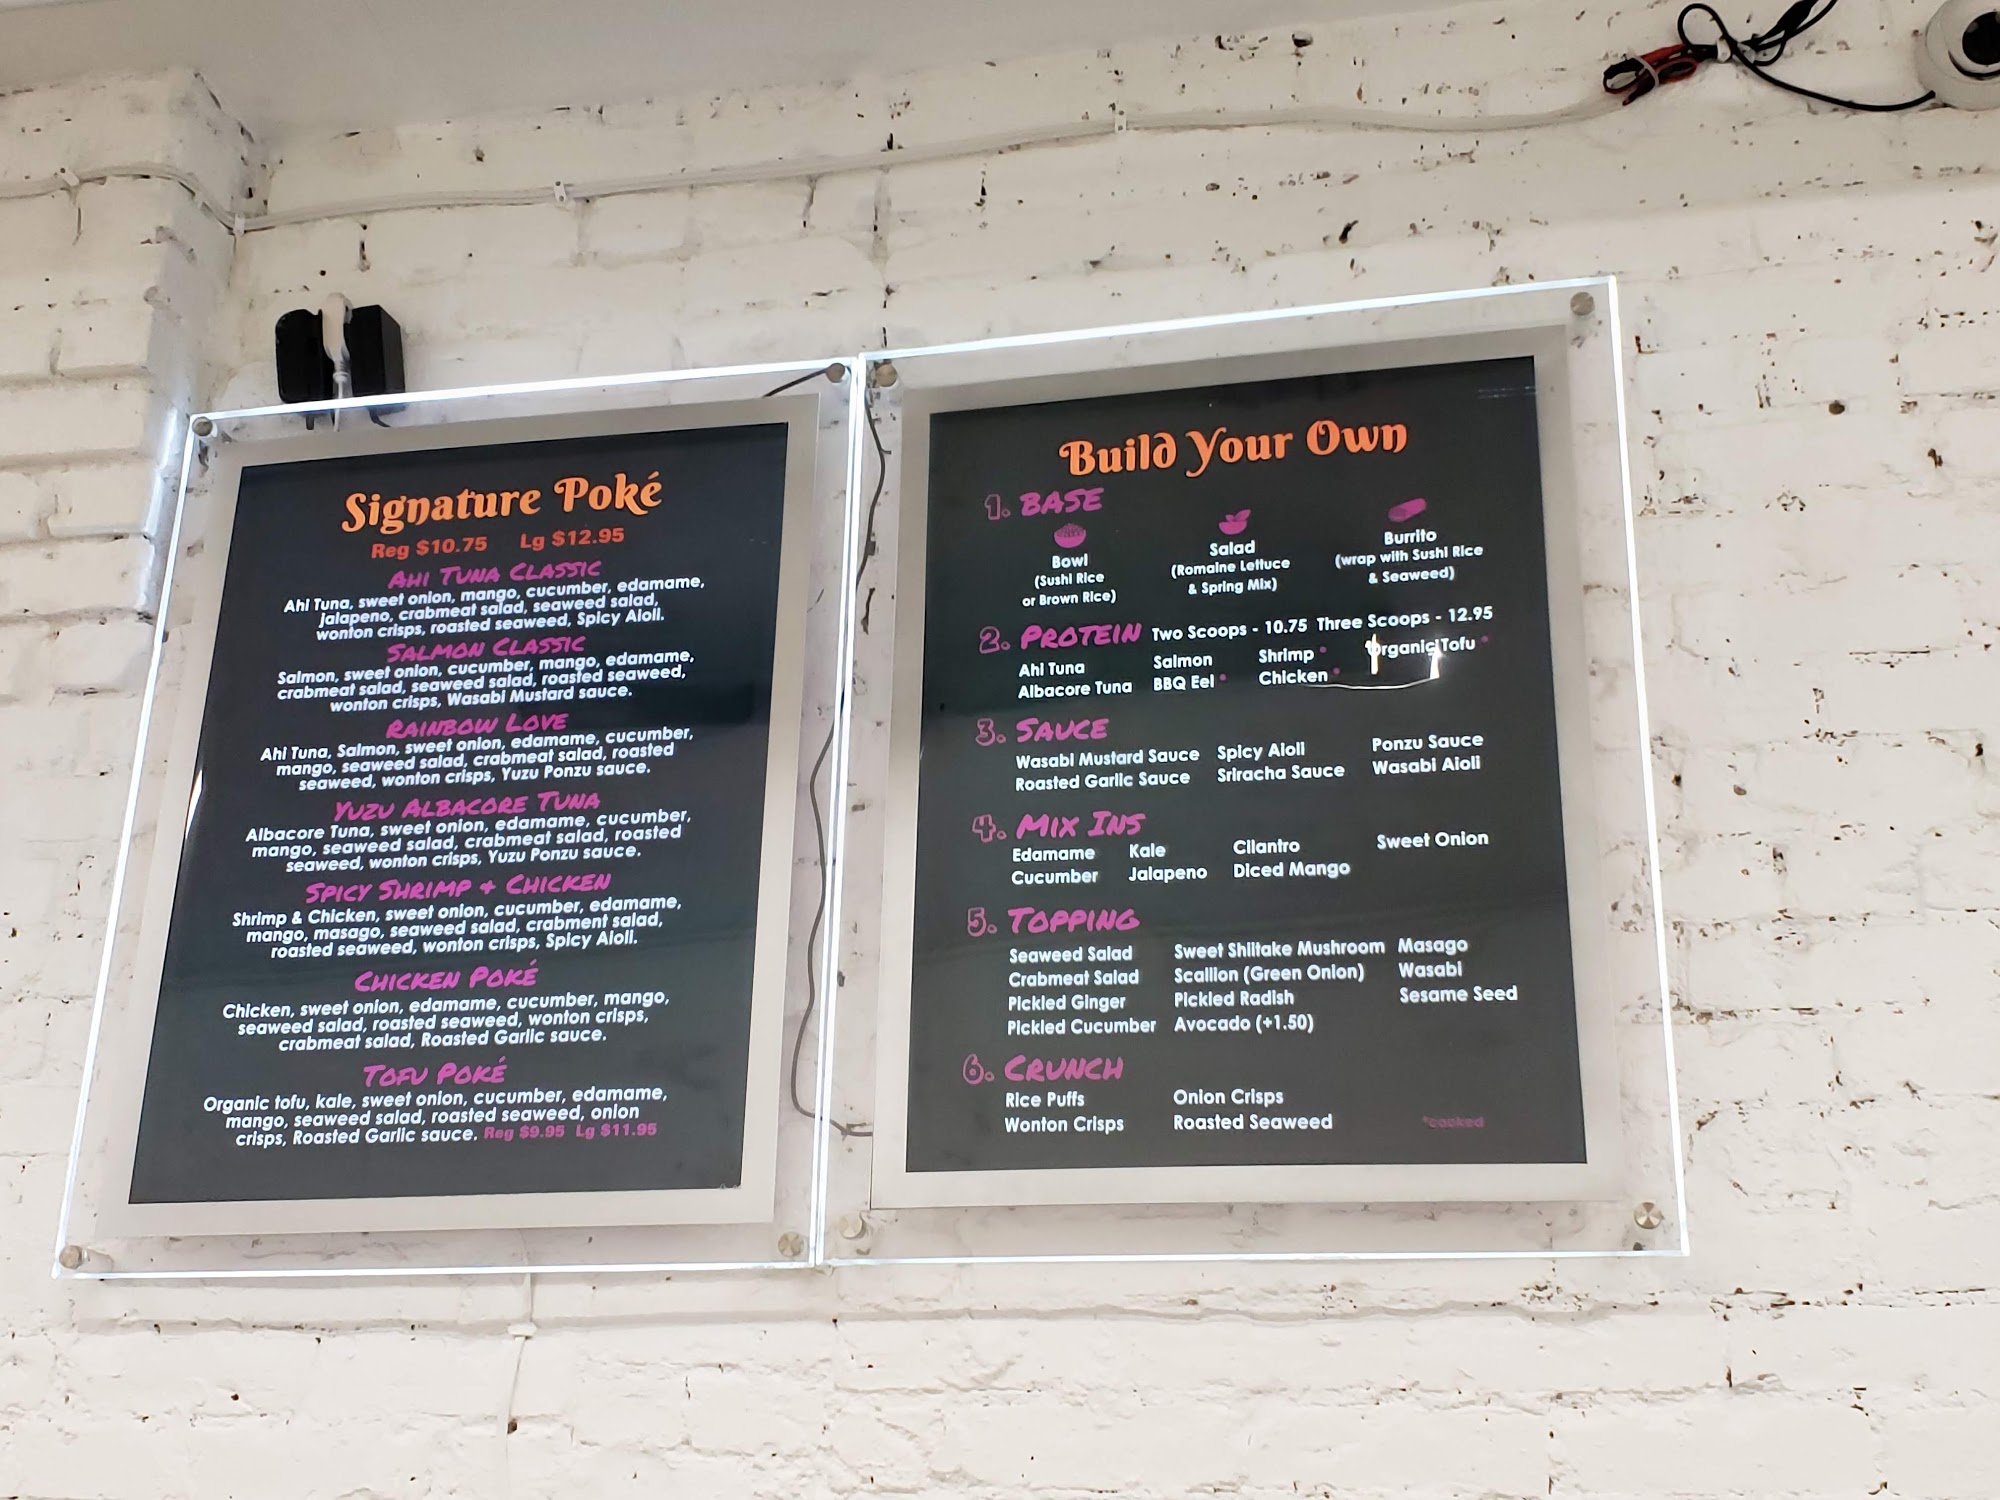 Signature Poké
Reg $10.75 Lg $12.95
AHI TUNA CLASSIC
Ahi Tuna, sweet onion, mango, cucumber, edamame,
jalapeno, crabmeat salad, seaweed salad,
wonton crisps, roasted seaweed, Spicy Aioli.
SALMON CLASSIC
Salmon, sweet onion, cucumber, mango, edamame,
crabmeat salad, seaweed salad, roasted seaweed,
wonton crisps, Wasabi Mustard sauce.
RAINBOW LOVE
Ahi Tuna, Salmon, sweet onion, edamame, cucumber,
mango, seaweed salad, crabmeat salad, roasted
seaweed, wonton crisps, Yuzu Ponzu sauce.
YUZU ALBACORE TUNA
Albacore Tuna, sweet onion, edamame, cucumber,
mango, seaweed salad, crabmeat salad, roasted
seaweed, wonton crisps, Yuzu Ponzu sauce.
SPICY SHRIMP + CHICKEN
Shrimp & Chicken, sweet onion, cucumber, edamame,
mango, masago, seaweed salad, crabment salad,
roasted seaweed, wonton crisps, Spicy Aioli.
CHICKEN POKÉ
Chicken, sweet onion, edamame, cucumber, mango,
seaweed salad, roasted seaweed, wonton crisps,
crabmeat salad, Roasted Garlic sauce.
TOFU POKÉ
Organic tofu, kale, sweet onion, cucumber, edamame,
mango, seaweed salad, roasted seaweed, onion
crisps, Roasted Garlic sauce. Reg $9.95 Lg $11.95
Build Your Own
1. BASE
Bowl
(Sushi Rice
or Brown Rice)
Salad
(Romaine Lettuce
& Spring Mix)
Burrito
(wrap with Sushi Rice
& Seaweed)
2. PROTEIN Two Scoops - 10.75 Three Scoops - 12.95
Ahi Tuna Salmon Shrimp * Organic Tofu *
Albacore Tuna BBQ Eel * Chicken *
3. SAUCE
Wasabi Mustard Sauce Spicy Aioli Ponzu Sauce
Roasted Garlic Sauce Sriracha Sauce Wasabi Aioli
4. MIX INS
Edamame Kale Cilantro Sweet Onion
Cucumber Jalapeno Diced Mango
5. TOPPING
Seaweed Salad Sweet Shiitake Mushroom Masago
Crabmeat Salad Scallion (Green Onion) Wasabi
Pickled Ginger Pickled Radish Sesame Seed
Pickled Cucumber Avocado (+1.50)
6. CRUNCH
Rice Puffs Onion Crisps
Wonton Crisps Roasted Seaweed *cooked